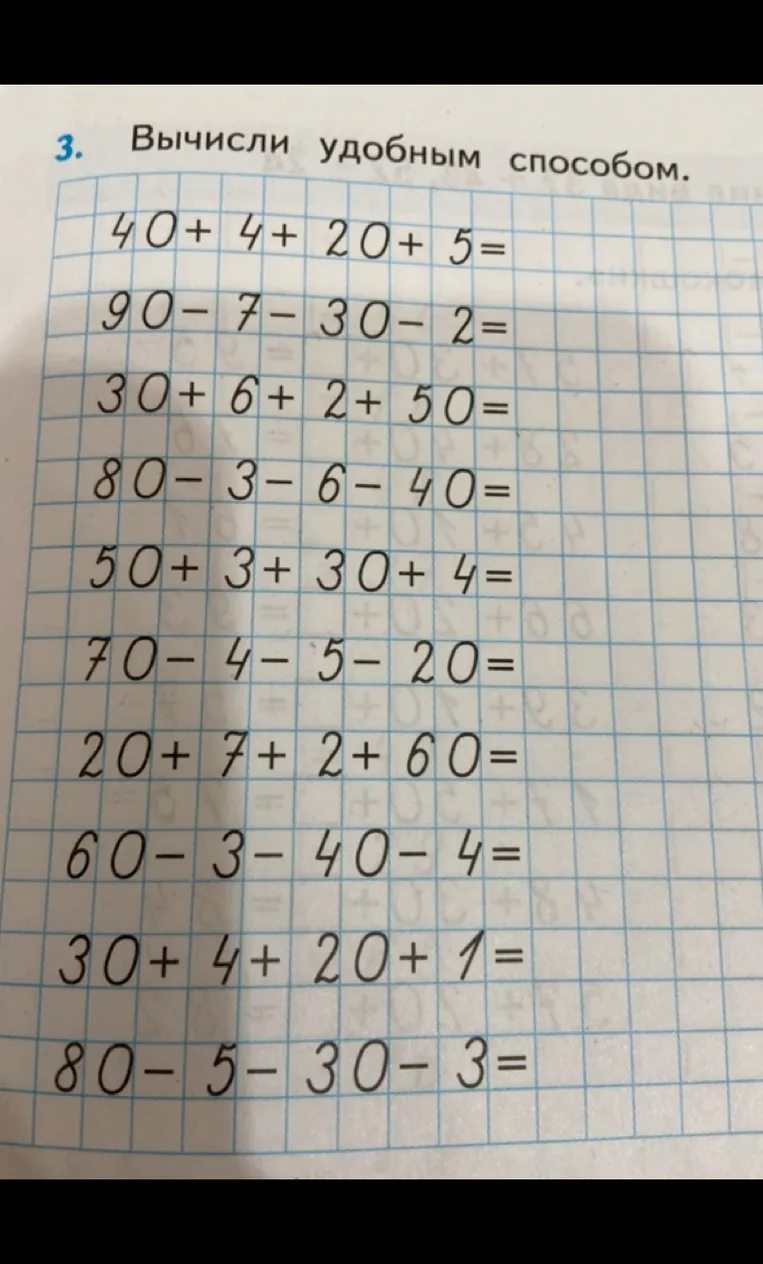 3. Вычисли удобным способом.
40+ 4+ 20+ 5=
90- 7- 30- 2=
30+ 6+ 2+ 50=
80- 3- 6- 40=
50+ 3+ 30+ 4=
70- 4- 5- 20=
20+ 7+ 2+ 60=
60- 3- 40- 4=
30+ 4+ 20+ 1=
80- 5- 30- 3=